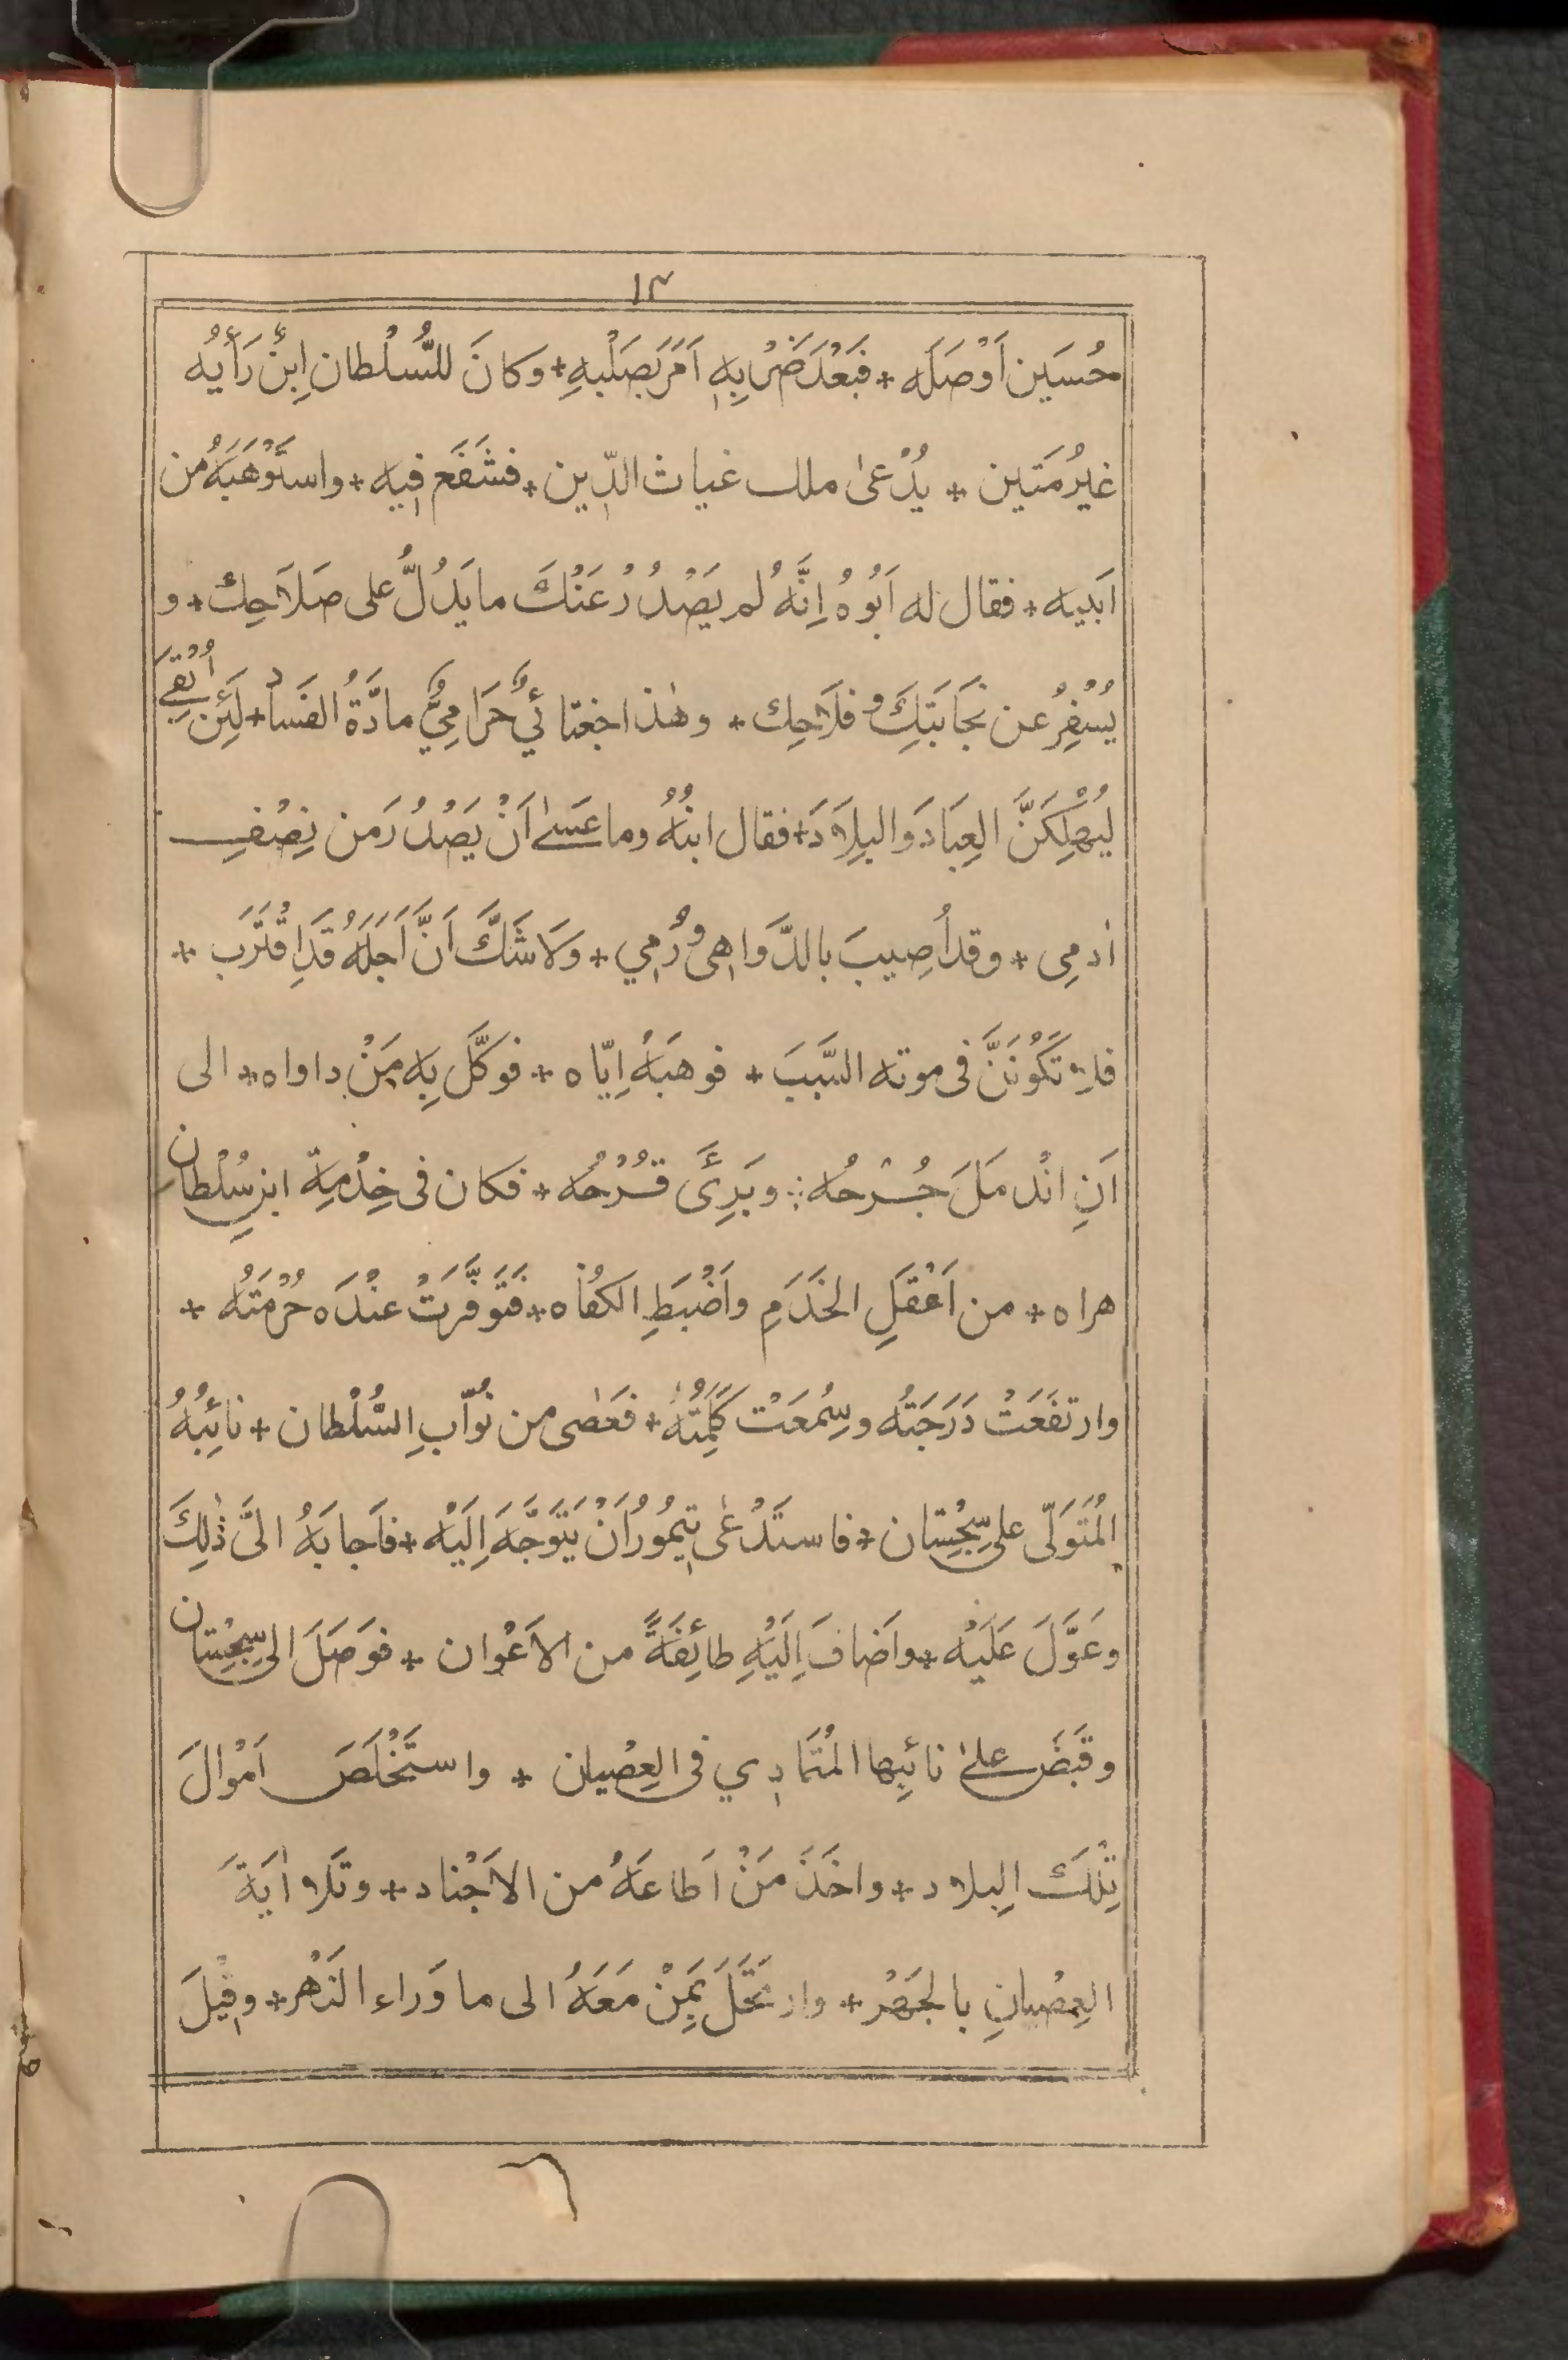 ١٣
حُسَين اَوْصَلَه * فَبَعْدَ ضَرْبِهٖ اَمَرَ بِصَلْبِهِ * وَكانَ للسُّلْطان اِبنٌ رَأيُه
غيرُ مَتين * يُدْعىٰ ملك غياث الدِّين * فشَفَع فيه * واستَوْهَبَهُ من
اَبيه * فقال له اَبُوهُ اِنَّهُ لم يَصْدُرْ عَنْكَ ما يَدُلُّ على صَلاَحِك * و
يُسْفِرُ عن نَجَابَتِكَ و فلَاحِك * وهٰذا جغتائيٌّ حَرَامِيٌّ مادَّةُ الفَساد * لَئِن اُبْقِيَ
ليُهْلِكَنَّ العِبَادَ والبِلَادَ * فقال ابنُهُ وما عَسىٰ اَنْ يَصْدُرَ من نِصْفِ
اٰدمِى * وقد اُصِيبَ بالدَّواهِى و رُمِي * وَلَا شَكَّ اَنَّ اَجَلَهُ قَدِ اقْتَرَب *
فلا تَكُونَنَّ فى موته السَّبَبَ * فوهبَهُ اِيّاه * فوكَّل بِه مَنْ داواه * الى
اَنِ انْدمَلَ جُرْحُه * وبَرِئَ قَرْحُه * فكان فى خِدْمةِ ابنِ سُلْطان
هراه * من اَعْقَلِ الخَدَمِ واَضْبَطِ الكُفاه * فَتَوفَّرَتْ عنْدَه حُرْمَتُه *
وارتفَعَتْ دَرَجَتُه وسُمِعَتْ كَلِمَتُهُ * فعَصٰى من نُوّابِ السُّلْطان * نائِبُهُ
المُتَوَلّى على سِجِسْتان * فاستَدْعىٰ تيمُورُ اَنْ يَتَوَجَّهَ اِلَيْه * فاَجابَهُ الىٰ ذٰلِكَ
وعَوَّلَ عَلَيْه * واَضافَ اِلَيْهِ طائِفَةً من الاَعْوان * فوَصَلَ الى سِجِسْتان
وقَبَضَ علىٰ نائبِها المُتَمادِي فى العِصْيان * واستَخْلَصَ اَمْوالَ
تِلْكَ البِلاد * واخَذَ مَنْ اَطاعَهُ من الاَجْناد * وتَلا اٰيَةَ
العِصْيانِ بالجَهْر * وارتَحَلَ بمَنْ مَعَهُ الى ما وَراء النَهْر * وقيلَ